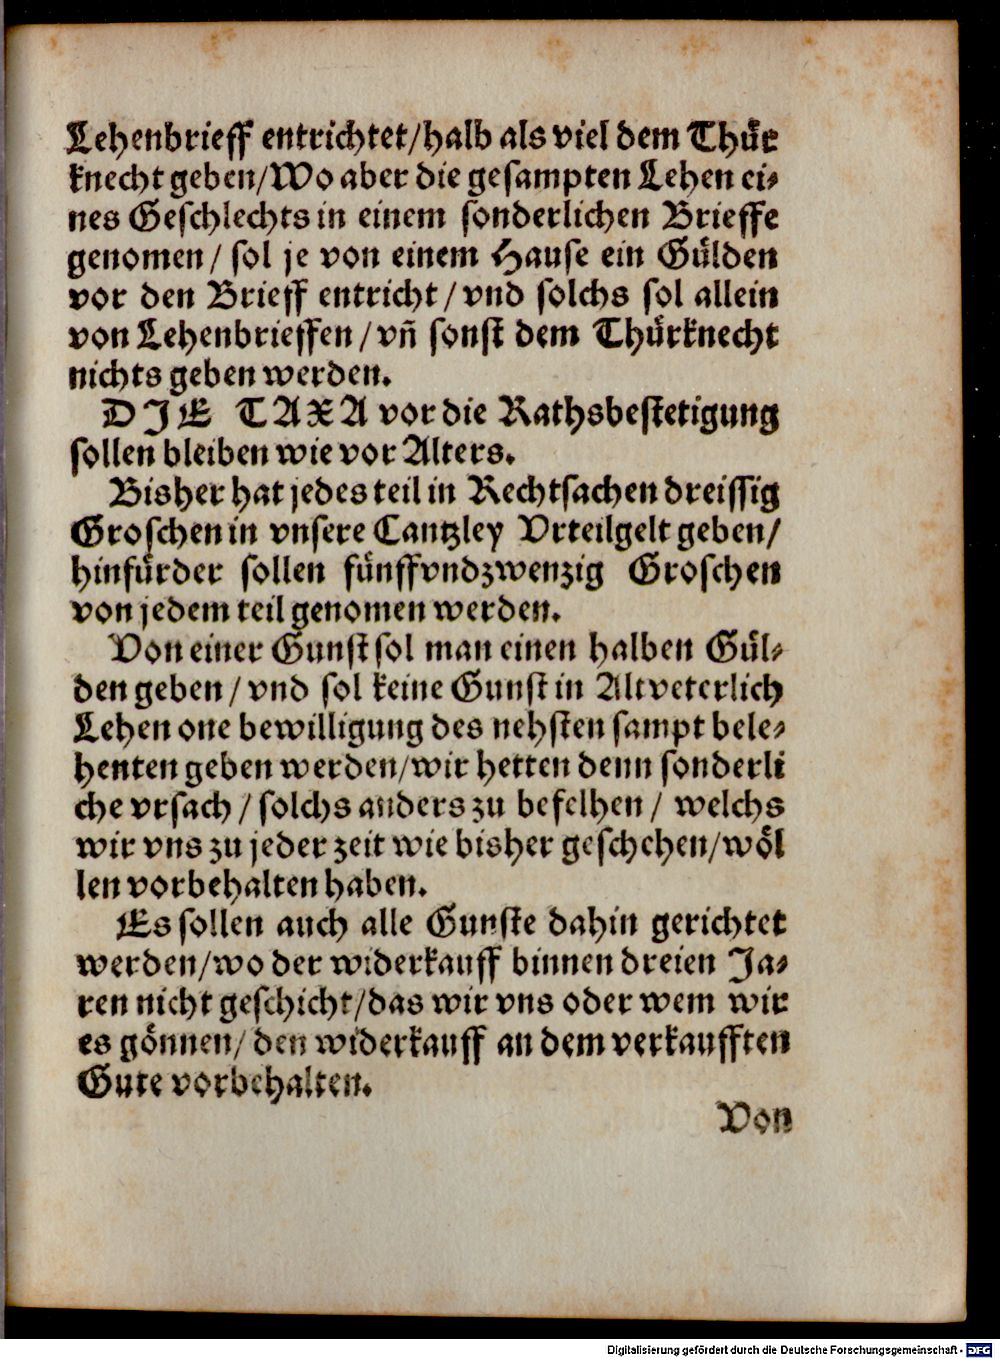 Lehenbrieff entrichtet/halb als viel dem Thür
knecht geben/Wo aber die gesampten Lehen ei-
nes Geschlechts in einem sonderlichen Brieffe
genomen/ sol je von einem Hause ein Gülden
vor den Brieff entricht/vnd solchs sol allein
von Lehenbrieffen/vñ sonst dem Thürknecht
nichts geben werden.
DIE TAXA vor die Rathsbestetigung
sollen bleiben wie vor Alters.
Bisher hat jedes teil in Rechtsachen dreissig
Groschen in vnsere Cantzley Vrteilgelt geben/
hinfürder sollen fünffvndzwenzig Groschen
von jedem teil genomen werden.
Von einer Gunst sol man einen halben Gül-
den geben/vnd sol keine Gunst in Altveterlich
Lehen one bewilligung des nehsten sampt bele-
henten geben werden/wir hetten denn sonderli
che vrsach/solchs anders zu befelhen/ welchs
wir vns zu jeder zeit wie bisher geschehen/wöl
len vorbehalten haben.
Es sollen auch alle Gunste dahin gerichtet
werden/wo der widerkauff binnen dreien Ja-
ren nicht geschicht/das wir vns oder wem wir
es gönnen/ den widerkauff an dem verkaufften
Gute vorbehalten.
Von
Digitalisierung gefördert durch die Deutsche Forschungsgemeinschaft - DFG